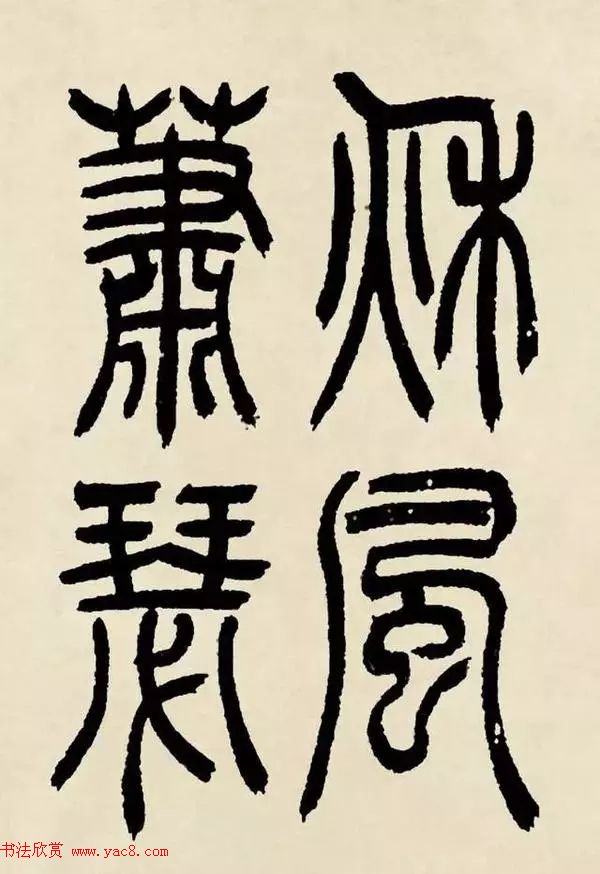 秌風
蕭瑟
书法欣赏 www.yac8.com